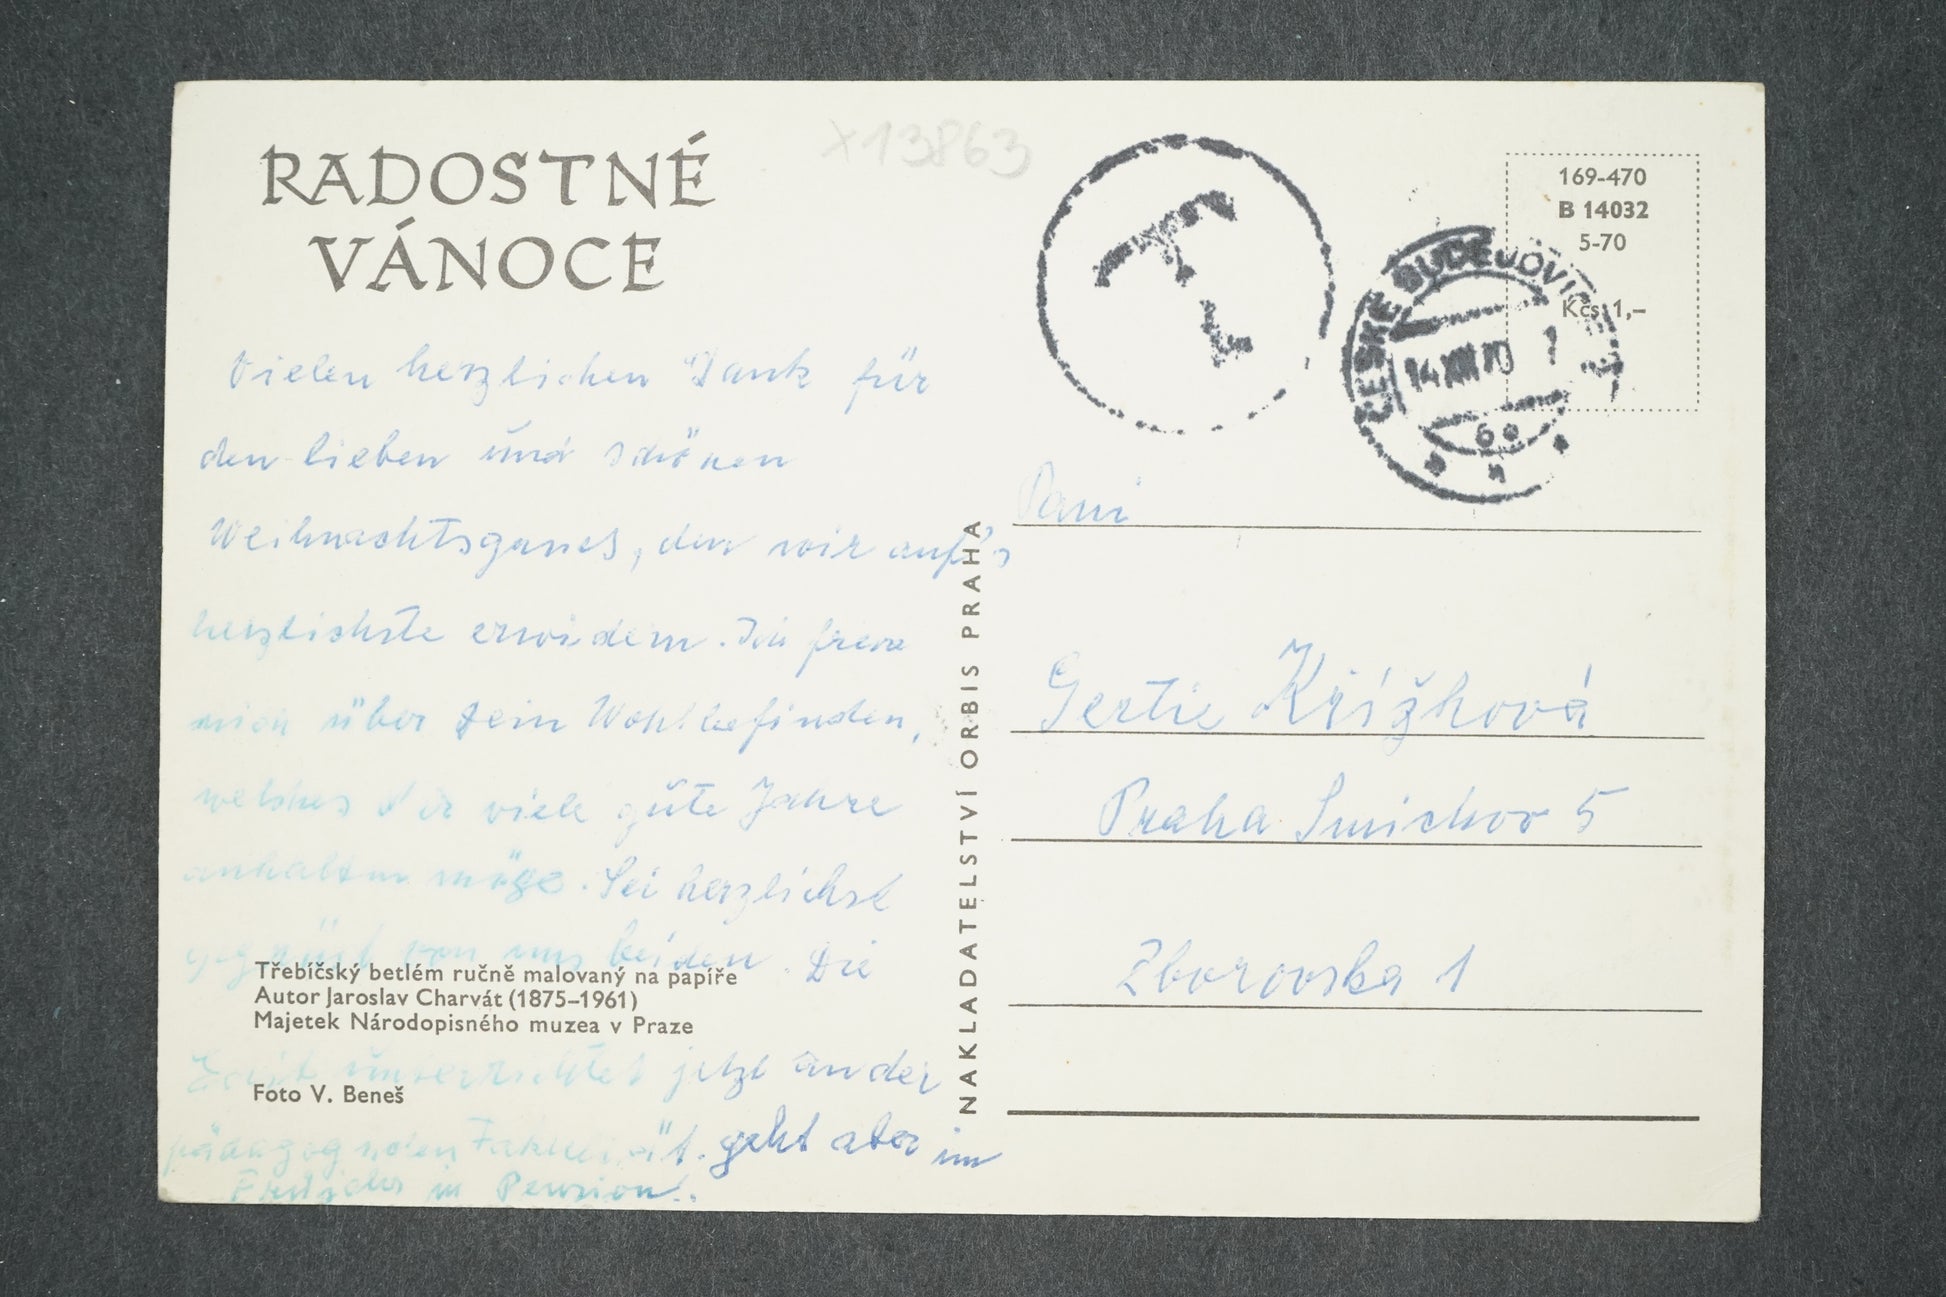 RADOSTNÉ
VÁNOCE
x13863
Vielen herzlichen Dank für
den lieben und schönen
Weihnachtsgruss, den wir auf's
herzlichste erwidern. Ich freue
mich über Dein Wohlbefinden,
welches Dir viele gute Jahre
anhalten möge. Sei herzlichst
gegrüsst von uns beiden. Die
unterrichtet jetzt an der
pädagogischen Fakultät. geht aber im
Frühjahr in Pension.
Třebíčský betlém ručně malovaný na papíře
Autor Jaroslav Charvát (1875–1961)
Majetek Národopisného muzea v Praze
Foto V. Beneš
NAKLADATELSTVÍ ORBIS PRAHA
T
ČESKÉ BUDĚJOVICE 1
14.XII.70
169-470
B 14032
5-70
Kčs 1,–
Paní
Gertie Křížková
Praha Smichov 5
Zborovska 1